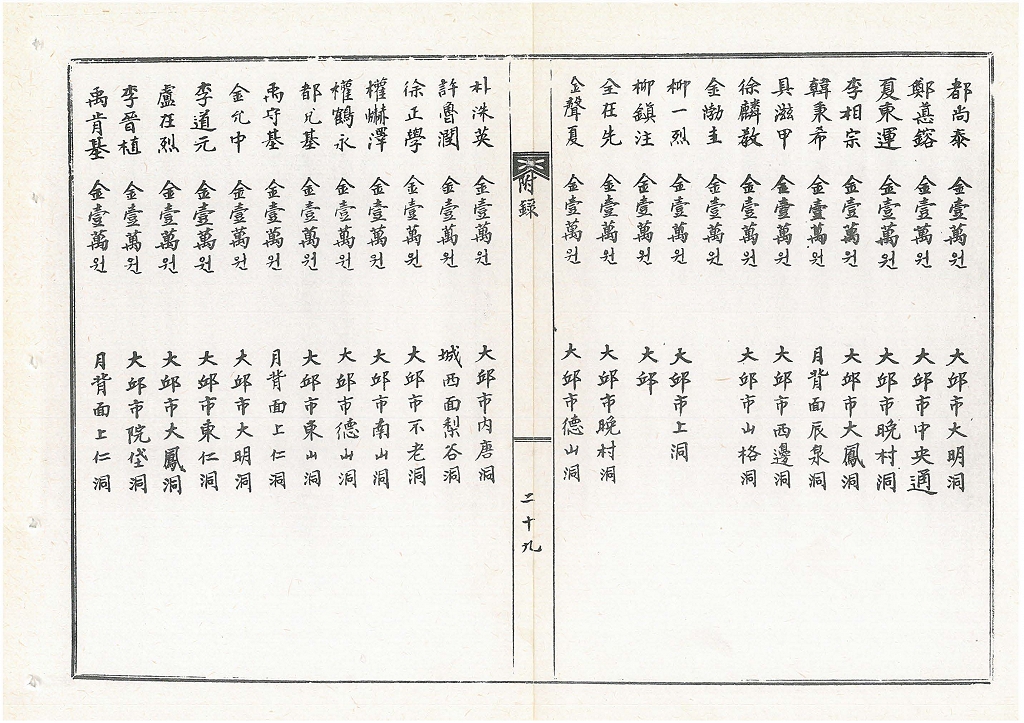 都尚泰 金壹萬원 大邱市大明洞
鄭憙鎔 金壹萬원 大邱市中央通
夏東運 金壹萬원 大邱市晩村洞
李相宗 金壹萬원 大邱市大鳳洞
韓秉希 金壹萬원 月背面辰泉洞
具滋甲 金壹萬원 大邱市西邊洞
徐麟敎 金壹萬원 大邱市山格洞
金渤圭 金壹萬원
柳一烈 金壹萬원 大邱市上洞
柳鎭注 金壹萬원 大邱
全在先 金壹萬원 大邱市晩村洞
金聲夏 金壹萬원 大邱市德山洞
附録
二十九
朴洙英 金壹萬원 大邱市內唐洞
許魯潤 金壹萬원 城西面梨谷洞
徐正學 金壹萬원 大邱市不老洞
權赫澤 金壹萬원 大邱市南山洞
權鶴永 金壹萬원 大邱市德山洞
都凡基 金壹萬원 大邱市東山洞
禹守基 金壹萬원 月背面上仁洞
金允中 金壹萬원 大邱市大明洞
李道元 金壹萬원 大邱市東仁洞
盧在烈 金壹萬원 大邱市大鳳洞
李晉植 金壹萬원 大邱市院垈洞
禹肯基 金壹萬원 月背面上仁洞